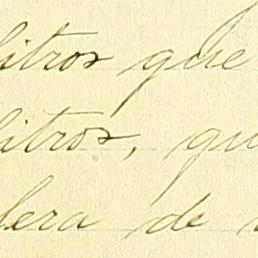 litros que
litros, qu
lera de